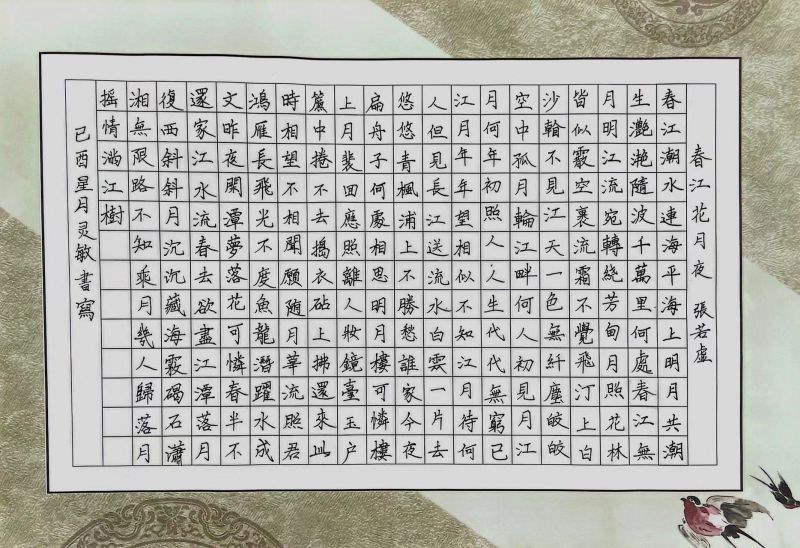 春江花月夜 張若虛
春江潮水連海平海上明月共潮
生灩滟隨波千萬里何處春江無
月明江流宛轉繞芳甸月照花林
皆似霰空裏流霜不覺飛汀上白
沙不見江天一色無纤塵皎皎
空中孤月輪江畔何人初見月江
月何年初照人人生代代無窮已
江月年年望相似不知江月待何
人但見長江送流水白雲一片去
悠悠青楓浦上不勝愁誰家今夜
扁舟子何處相思明月樓可憐樓
上月裴回應照離人妝鏡臺玉户
簾中捲不去搗衣砧上拂還來此
時相望不相聞願随月華流照君
鴻雁長飛光不度魚龍潛躍水成
文昨夜閑潭夢落花可憐春半不
還家江水流春去欲盡江潭落月
復西斜斜月沉沉藏海霧碣石瀟
湘無限路不知乘月幾人歸落月
摇情滿江樹
己酉星月灵敏書寫